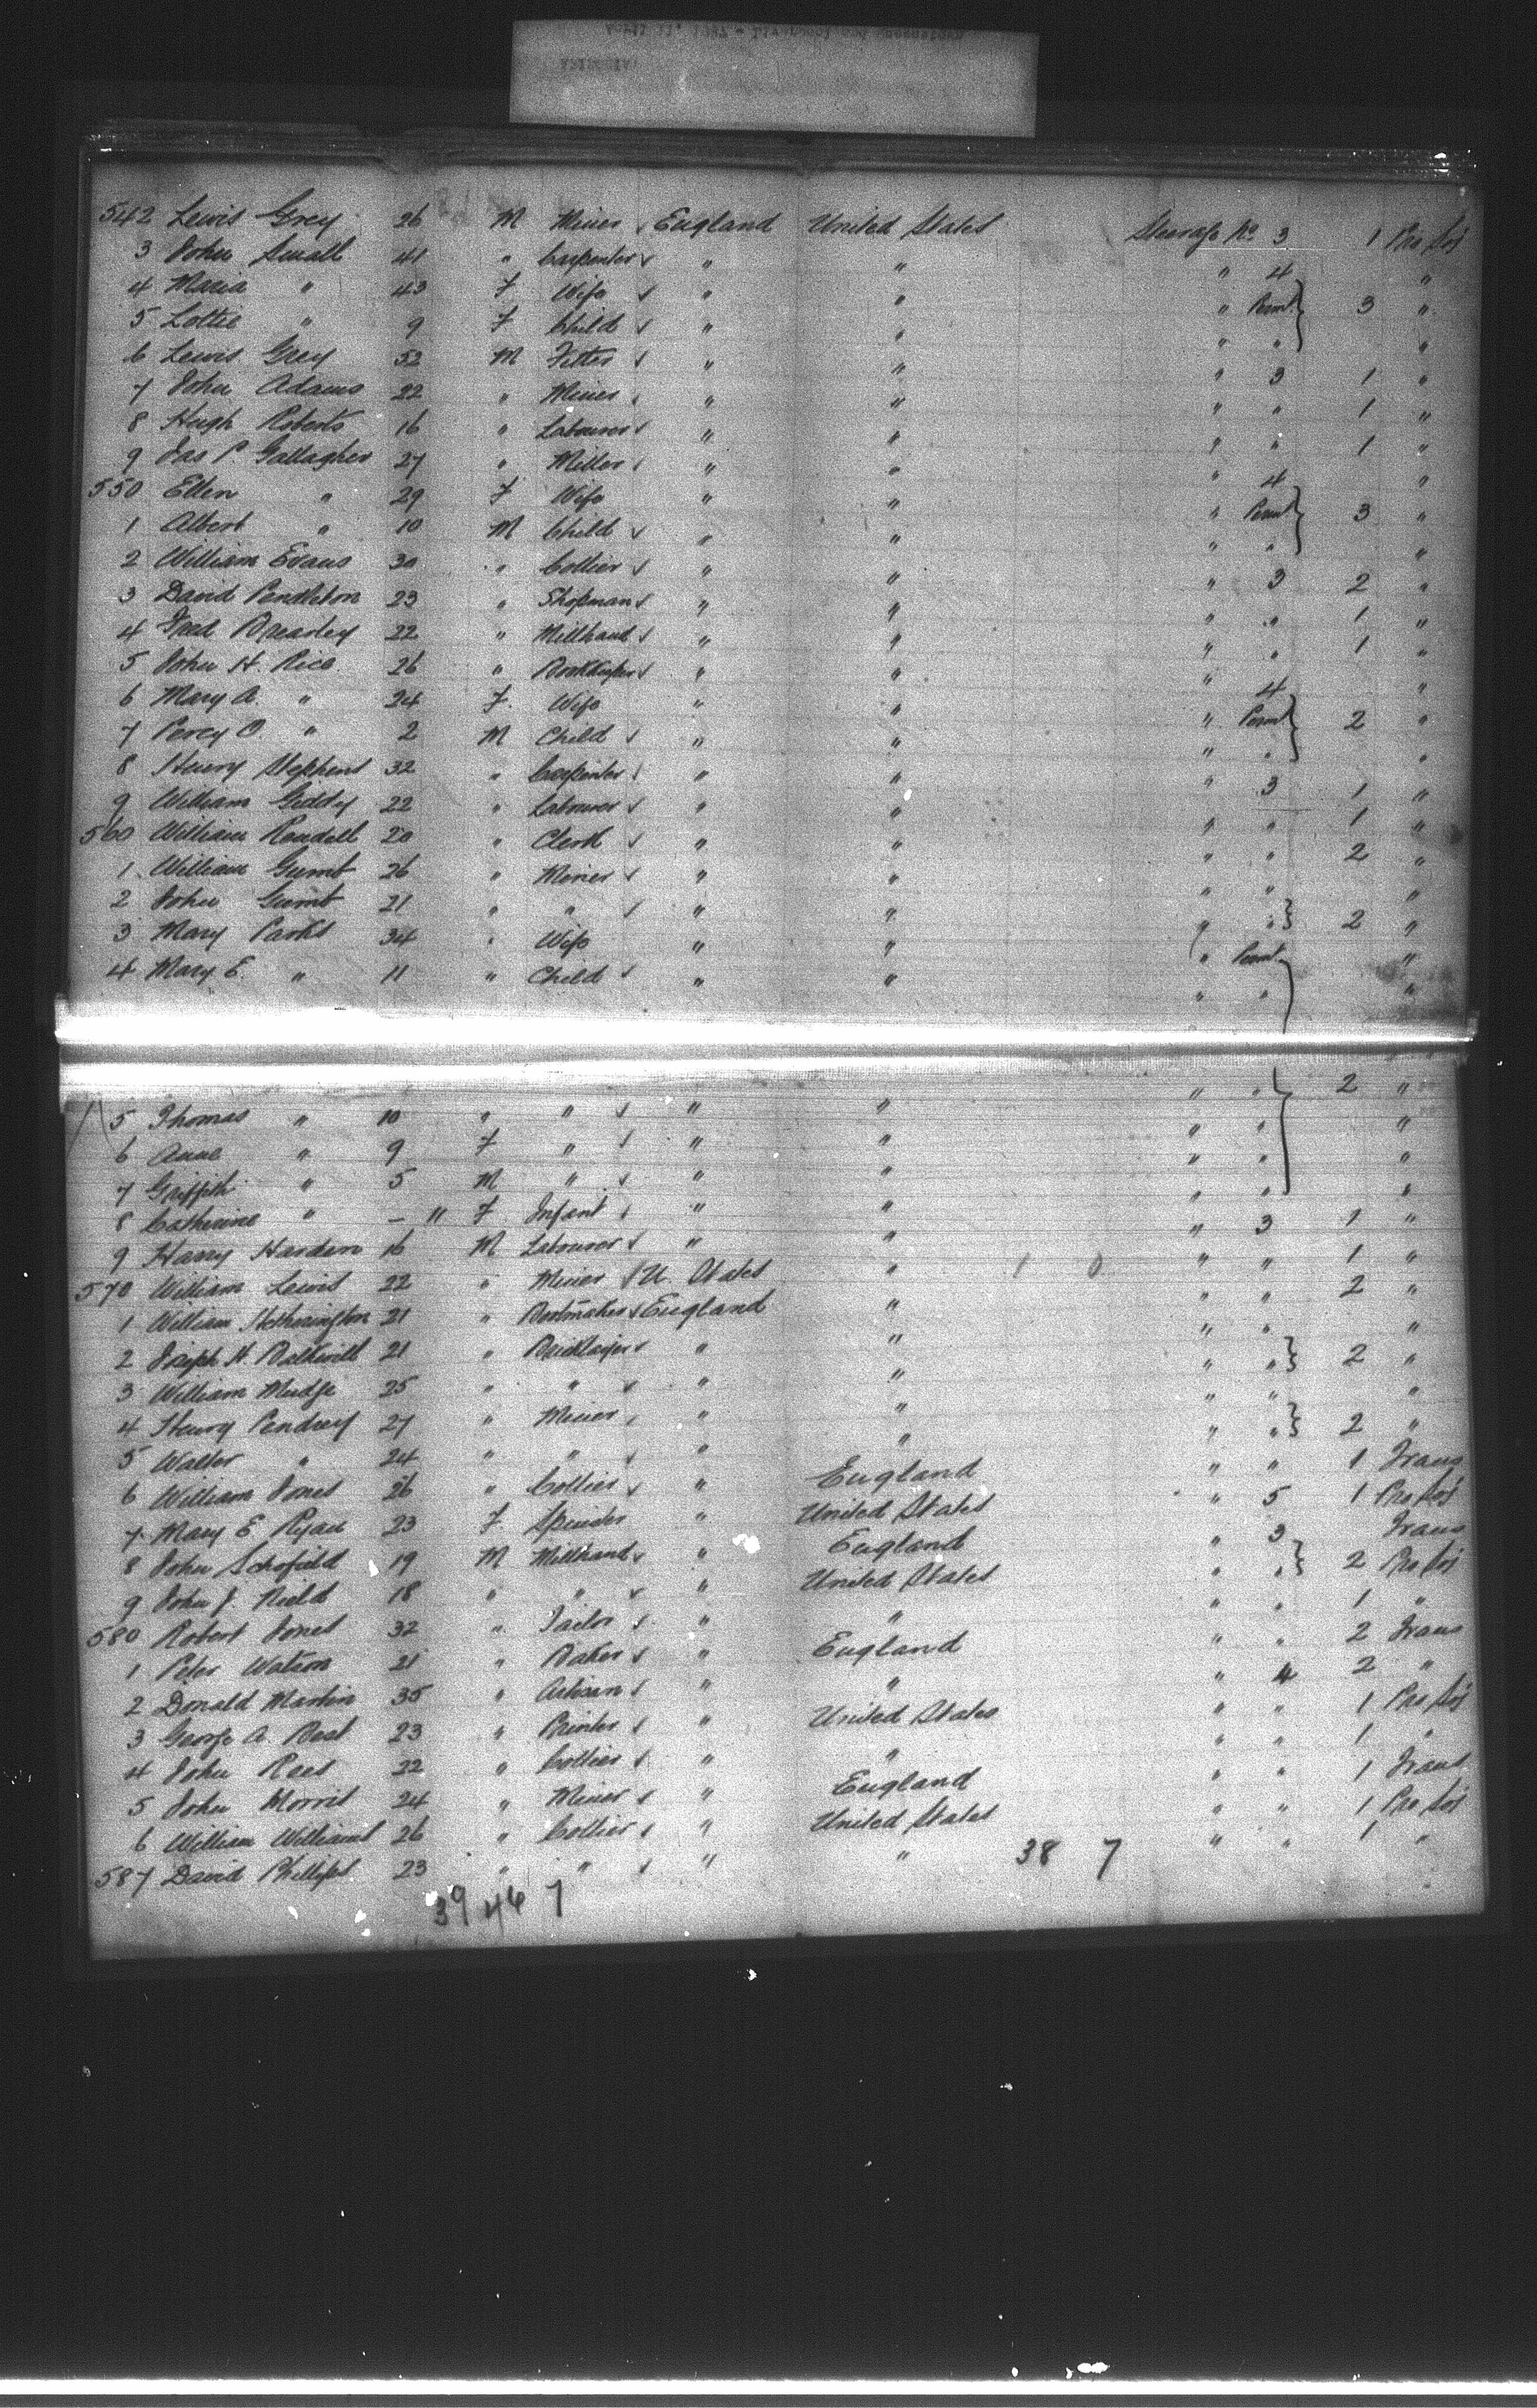 542 Lewis Grey 26 M Miner England United States Steerage No 3 1 Pro Soj
3 John Small 41 " Carpenter " " " 4 "
4 Maria " 43 F Wife " " " 3 "
5 Lottie " 9 F Child " " " " "
6 Lewis Grey 52 M Fitter " " " 3 1 "
7 John Adams 22 " Miner " " " " 1 "
8 Hugh Roberts 16 " Labourer " " " " 1 "
9 Jas P. Gallagher 27 " Miller " " " 4 "
550 Ellen " 29 F Wife " " " 3 "
1 Albert " 10 M Child " " " " "
2 William Evans 30 " Collier " " " 3 2 "
3 David Pendleton 23 " Shopman " " " " 1 "
4 Fred Brearley 22 " Millhand " " " " 1 "
5 John H. Rice 26 " Bookkeeper " " " 4 "
6 Mary A. " 24 F. Wife " " " 2 "
7 Percy O. " 2 M Child " " " " "
8 Henry Stephens 32 " Carpenter " " " 3 1 "
9 William Giddy 22 " Labourer " " " " 1 "
560 William Randell 20 " Clerk " " " " 2 "
1 William 26 " Miner " " " " "
2 John 21 " " " " " " 2 "
3 Mary Parks 34 " Wife " " " "
4 Mary E. " 11 " Child " " " " "
5 Thomas " 10 " " " " " " 2 "
6 Anne " 9 F " " " " " "
7 Griffith " 5 M " " " " " "
8 Catherine " - " F Infant " " " " "
9 Harry Harden 16 M Labourer " " " 3 1 "
570 William Lewis 22 " Miner U. States " 1 0 " " 1 "
1 William Hetherington 21 " Bootmaker England " " " 2 "
2 Joseph H. 21 " Bricklayer " " " " "
3 William Mudge 25 " " " " " " 2 "
4 Henry 27 " Miner " " " " "
5 Walter " 24 " " " " " " 2 "
6 William Jones 26 " Collier " England " " 1 Trans
7 Mary E Ryan 23 F. Spinster " United States " 5 1 Pro Soj
8 John Schofield 19 M Millhand " England " 3 Trans
9 John J. Nield 18 " " " United States " " 2 Pro Soj
580 Robert Jones 32 " Tailor " " " " 1 "
1 Peter Watson 21 " Baker " England " " 2 Trans
2 Donald Martin 35 " Artisan " " " 4 2 "
3 George A. 23 " Printer " United States " " 1 Pro Soj
4 John Rees 22 " Collier " " " " 1 "
5 John Morris 24 " Miner " England " " 1 Trans
6 William Williams 26 " Collier " United States " " 1 Pro Soj
587 David Phillips 23 " " " " 38 7 " " 1 "
39 46 7